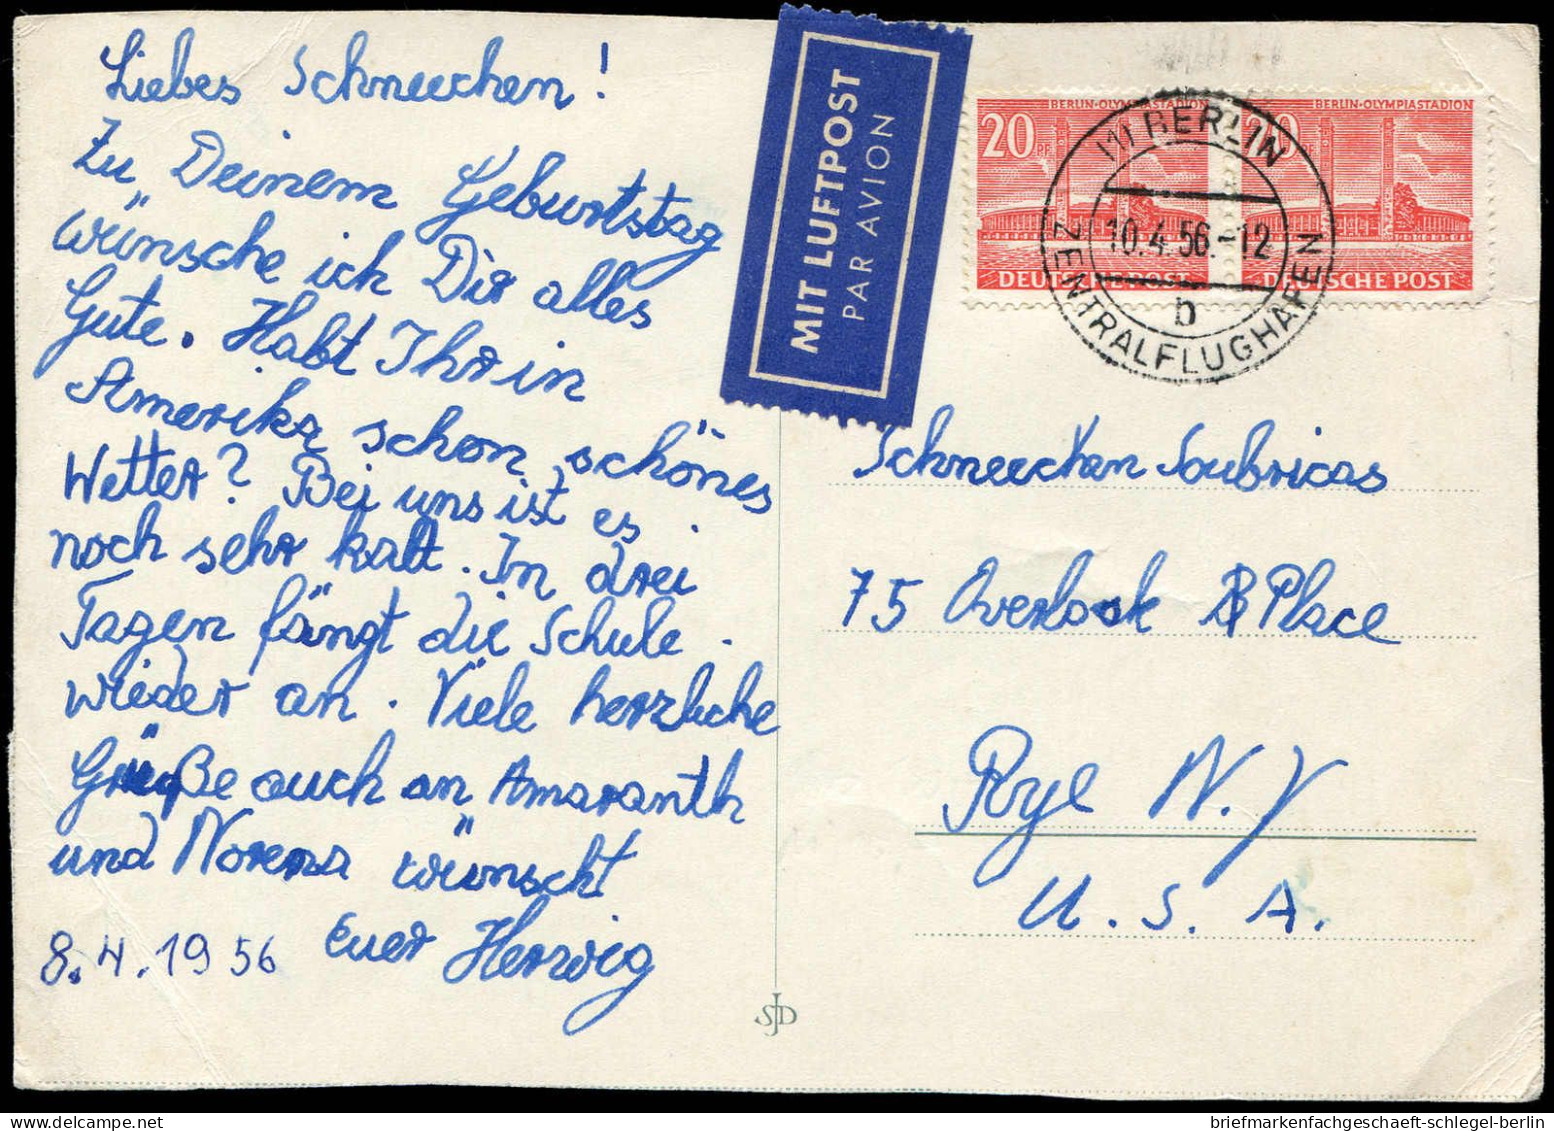 Liebes Schneechen!
Zu Deinem Geburtstag
wünsche ich Dir alles
Gute. Habt Ihr in
Amerika schon schönes
Wetter? Bei uns ist es
noch sehr kalt. In drei
Tagen fängt die Schule
wieder an. Viele herzliche
Grüße auch an Amaranth
und Norena wünscht
Euer Herwig
8.4.1956
MIT LUFTPOST
PAR AVION
BERLIN-OLYMPIASTADION
20 PF
DEUTSCHE POST
BERLIN-OLYMPIASTADION
20 PF
DEUTSCHE POST
(1) BERLIN
10.4.56.-12
b
ZENTRALFLUGHAFEN
Schneechen Soubricas
75 Overlook Place
Rye N.Y
U.S.A.
SJD
briefmarkenfachgeschaeft-schlegel-berlin